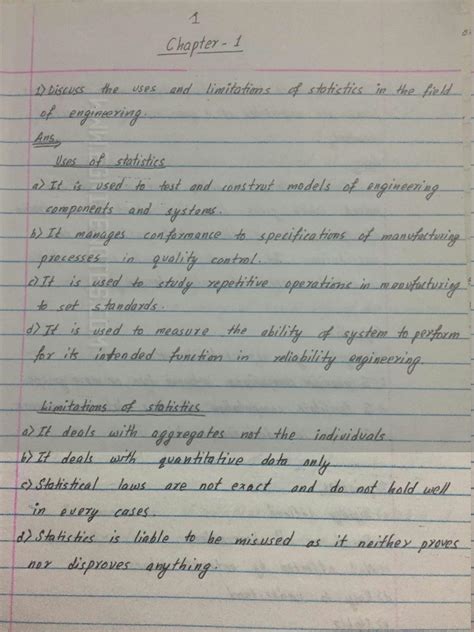 1
Chapter - 1
1) Discuss the uses and limitations of statistics in the field
of engineering.
Ans,
Uses of statistics
a) It is used to test and construt models of engineering
components and systems.
b) It manages conformance to specifications of manufacturing
processes in quality control.
c) It is used to study repetitive operations in manufacturing
to set standards.
d) It is used to measure the ability of system to perform
for its intended function in reliability engineering.
Limitations of statistics
a) It deals with aggregates not the individuals.
b) It deals with quantitative data only
c) Statistical laws are not exact and do not hold well
in every cases.
d) Statistics is liable to be misused as it neither proves
nor disproves anything.